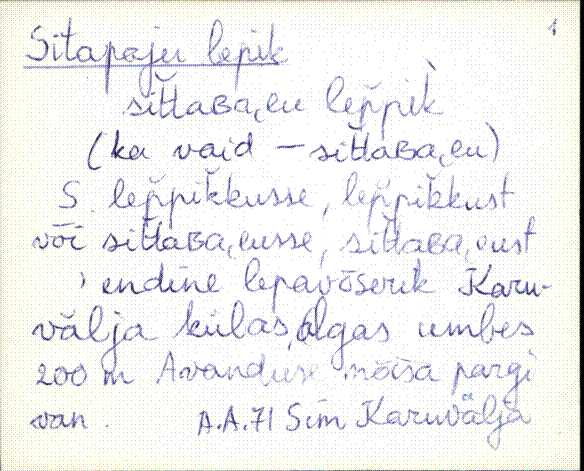 1
Sitapaju lepik
sit̆taʙa͔ιu lep̆pìk
(ka vaid – sit̆taʙa͔ιu)
S. lep̆pik̆kusse, lep̆pik̆kust
või sit̆taʙa͔ιusse, sit̆taʙa͔ιust
, endine lepavõserik Karu-
välja külas, algas umbes
200 m Avanduse mõisa pargi
A.A. 71 Sim Karuvälja